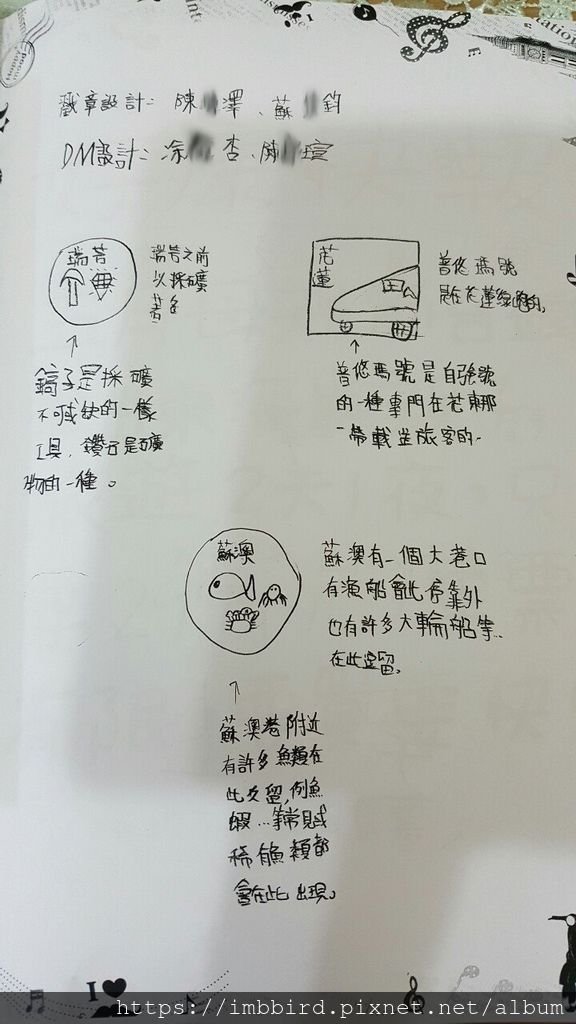 戳章設計: 陳 澤、蘇 鈞
DM設計: 涂 杏、陳 瑄
瑞芳
瑞芳之前
以採礦
著名
花
蓮
普悠瑪號
是在花蓮線跑的。
鎬子是採礦
不可或缺的一樣
工具,鑽石是礦
物的一種。
普悠瑪號是自強號
的一種專門在花東那
一帶載坐旅客的
蘇澳
蘇澳有一個大巷口
有漁船會此停靠外
也有許多大輪船等…
在此逗留。
蘇澳港附近
有許多魚類在
此久留,例魚
蝦…等常見或
稀 魚類都
會在此出現。
I
E
https://imbbird.pixnet.net/album